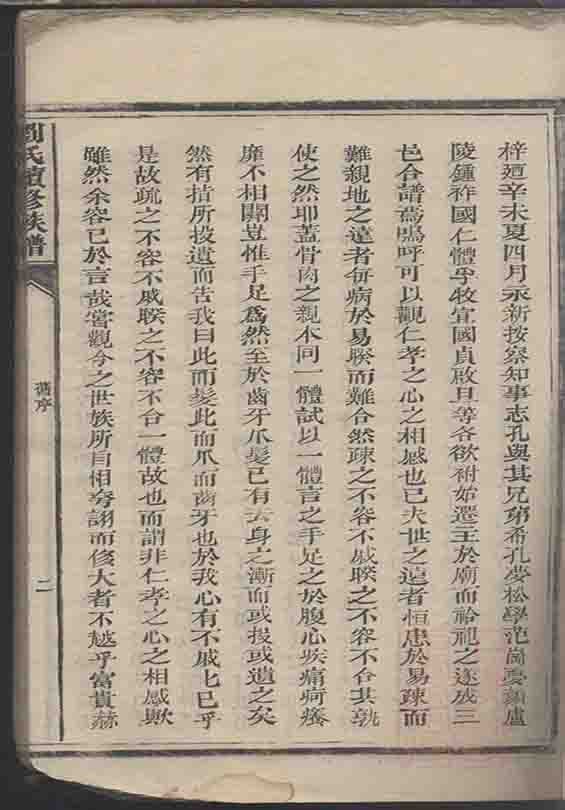 梓迺辛未夏四月永新按察知事志孔與其兄弟希孔夢松學范尚夔顏盧
陵鍾祚國仁體孚牧宜國貞啟旦等各欲祔始遷主於廟而祫祀之遂成三
邑合譜焉嗚呼可以觀仁孝之心之相感也已夫世之遠者恒患於易疎而
難親地之遠者每病於易睽而難合然疎之不容不戚睽之不容不合其孰
使之然耶蓋骨肉之親本同一體試以一體言之手足之於腹心疾痛疴癢
靡不相關豈惟手足為然至於齒牙爪髮已有去身之漸而或投或遺之矣
然有指所投遺而告我曰此而髮此而爪而齒牙也於我心有不戚戚乎
是故疏之不容不戚睽之不容不合一體故也而謂非仁孝之心之相感歟
雖然余容已於言哉嘗觀今之世族所自相夸詡而侈大者不越乎富貴赫
劉氏續修族譜
舊序
二